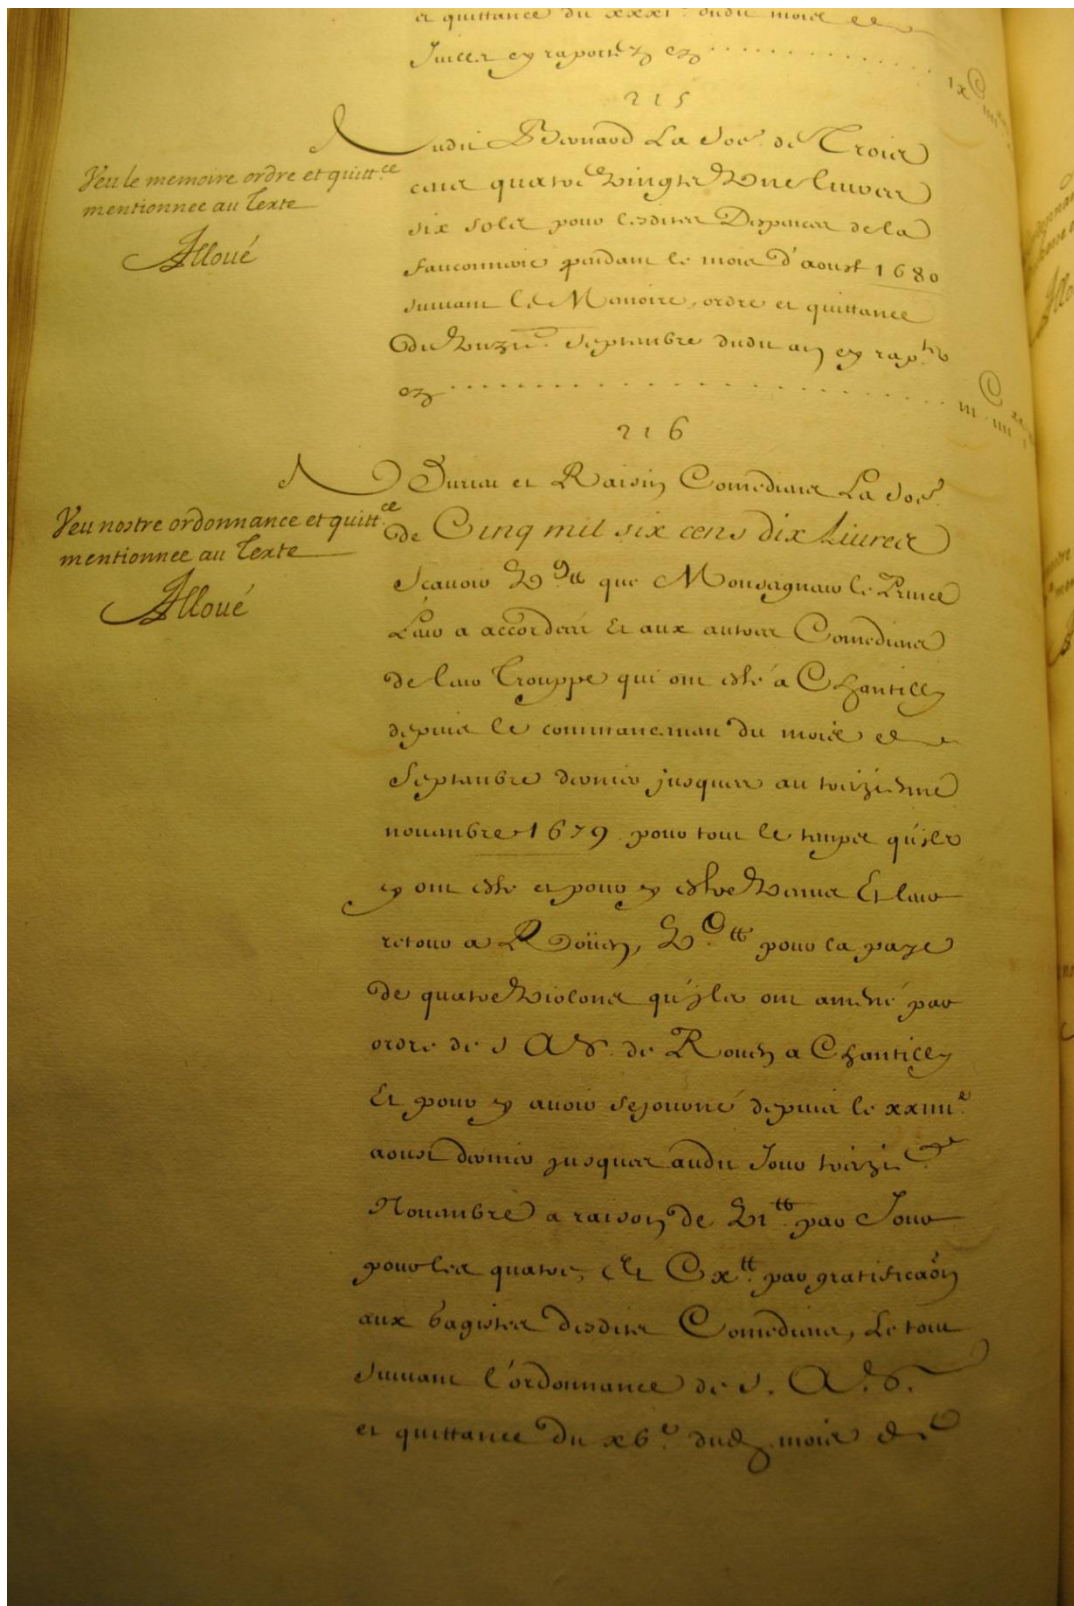 et quittance du xxxi.e dudit mois de
Juillet cy raportez cy
215
Audit Bernard La So.e de Trois
Veu le memoire ordre et quitt.ce
mentionnee au Texte
Alloué
cens quatre vingts Une livres
six sols pour lesdites Dépences de la
fauconnerie pendant le mois d'aoust 1680
suivant le Memoire, ordre et quittance
du Septembre dudit an cy rap.té
cy
216
A Durieu et Raisin Comediens La So.e
Veu nostre ordonnance et quitt.ce
mentionnee au Texte
Alloué
de Cinq mil six cens dix Livres
Scavoir que Monseigneur le Prince
Leur a accordéé Et aux autres Comediens
de leur Trouppe qui ont esté a Chantilly
depuis le commancement du mois de
Septembre dernier jusques au treiziesme
nouembre 1679 pour tout le temps qu'ils
y ont esté et pour y estre Venus Et leur
retour a Roüen, pour la paye
de quatre Violons qu'jls ont amené par
ordre de S A S. de Rouen a Chantilly
Et pour y auoir sejourné depuis le xxiiii.e
aoust dernier jusques audit Jour treizi.e
Nouembre a raison de tt par Jour
pour les quatre, Et Cx.tt par gratificaõn
aux gagistes desdits Comediens, Le tout
suivant l'ordonnance de S. A. S.
et quittance du x6.e dud. mois de